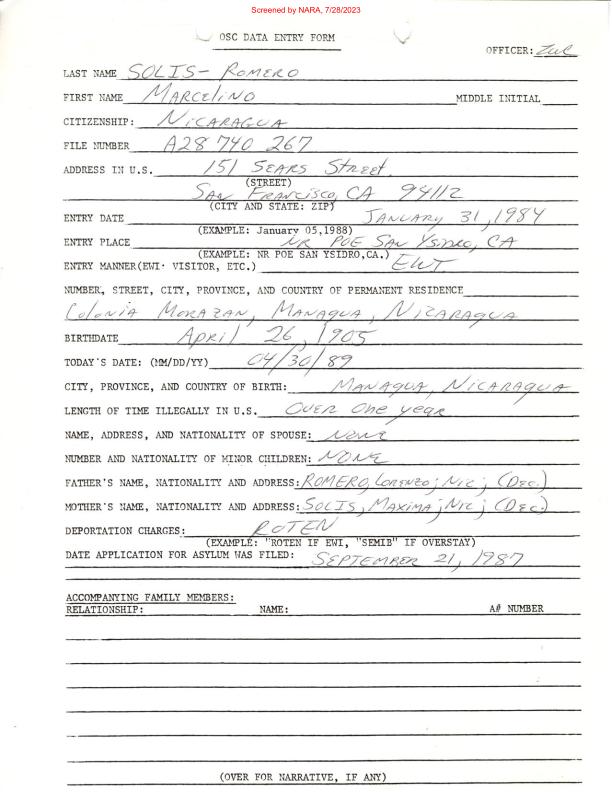 Screened by NARA, 7/28/2023
OSC DATA ENTRY FORM
OFFICER:
LAST NAME SOLIS-ROMERO
FIRST NAME MARCELINO MIDDLE INITIAL
CITIZENSHIP: NICARAGUA
FILE NUMBER A28 740 267
ADDRESS IN U.S. 151 SEARS STREET
(STREET)
SAN FRANCISCO, CA 94112
(CITY AND STATE: ZIP)
ENTRY DATE JANUARY 31, 1984
(EXAMPLE: January 05,1988)
ENTRY PLACE NR POE SAN YSIDRO, CA
(EXAMPLE: NR POE SAN YSIDRO,CA.)
ENTRY MANNER(EWI· VISITOR, ETC.) EWI
NUMBER, STREET, CITY, PROVINCE, AND COUNTRY OF PERMANENT RESIDENCE
Colonia MORAZAN, MANAGUA, NICARAGUA
BIRTHDATE APRIL 26, 1905
TODAY'S DATE: (MM/DD/YY) 04/30/89
CITY, PROVINCE, AND COUNTRY OF BIRTH: MANAGUA, NICARAGUA
LENGTH OF TIME ILLEGALLY IN U.S. OVER One year
NAME, ADDRESS, AND NATIONALITY OF SPOUSE: NONE
NUMBER AND NATIONALITY OF MINOR CHILDREN: NONE
FATHER'S NAME, NATIONALITY AND ADDRESS: ROMERO, LORENZO; NIC; (DEC.)
MOTHER'S NAME, NATIONALITY AND ADDRESS: SOLIS, MAXIMA; NIC; (DEC.)
DEPORTATION CHARGES: ROTEN
(EXAMPLE: "ROTEN IF EWI, "SEMIB" IF OVERSTAY)
DATE APPLICATION FOR ASYLUM WAS FILED: SEPTEMBER 21, 1987
ACCOMPANYING FAMILY MEMBERS:
RELATIONSHIP: NAME: A# NUMBER
(OVER FOR NARRATIVE, IF ANY)